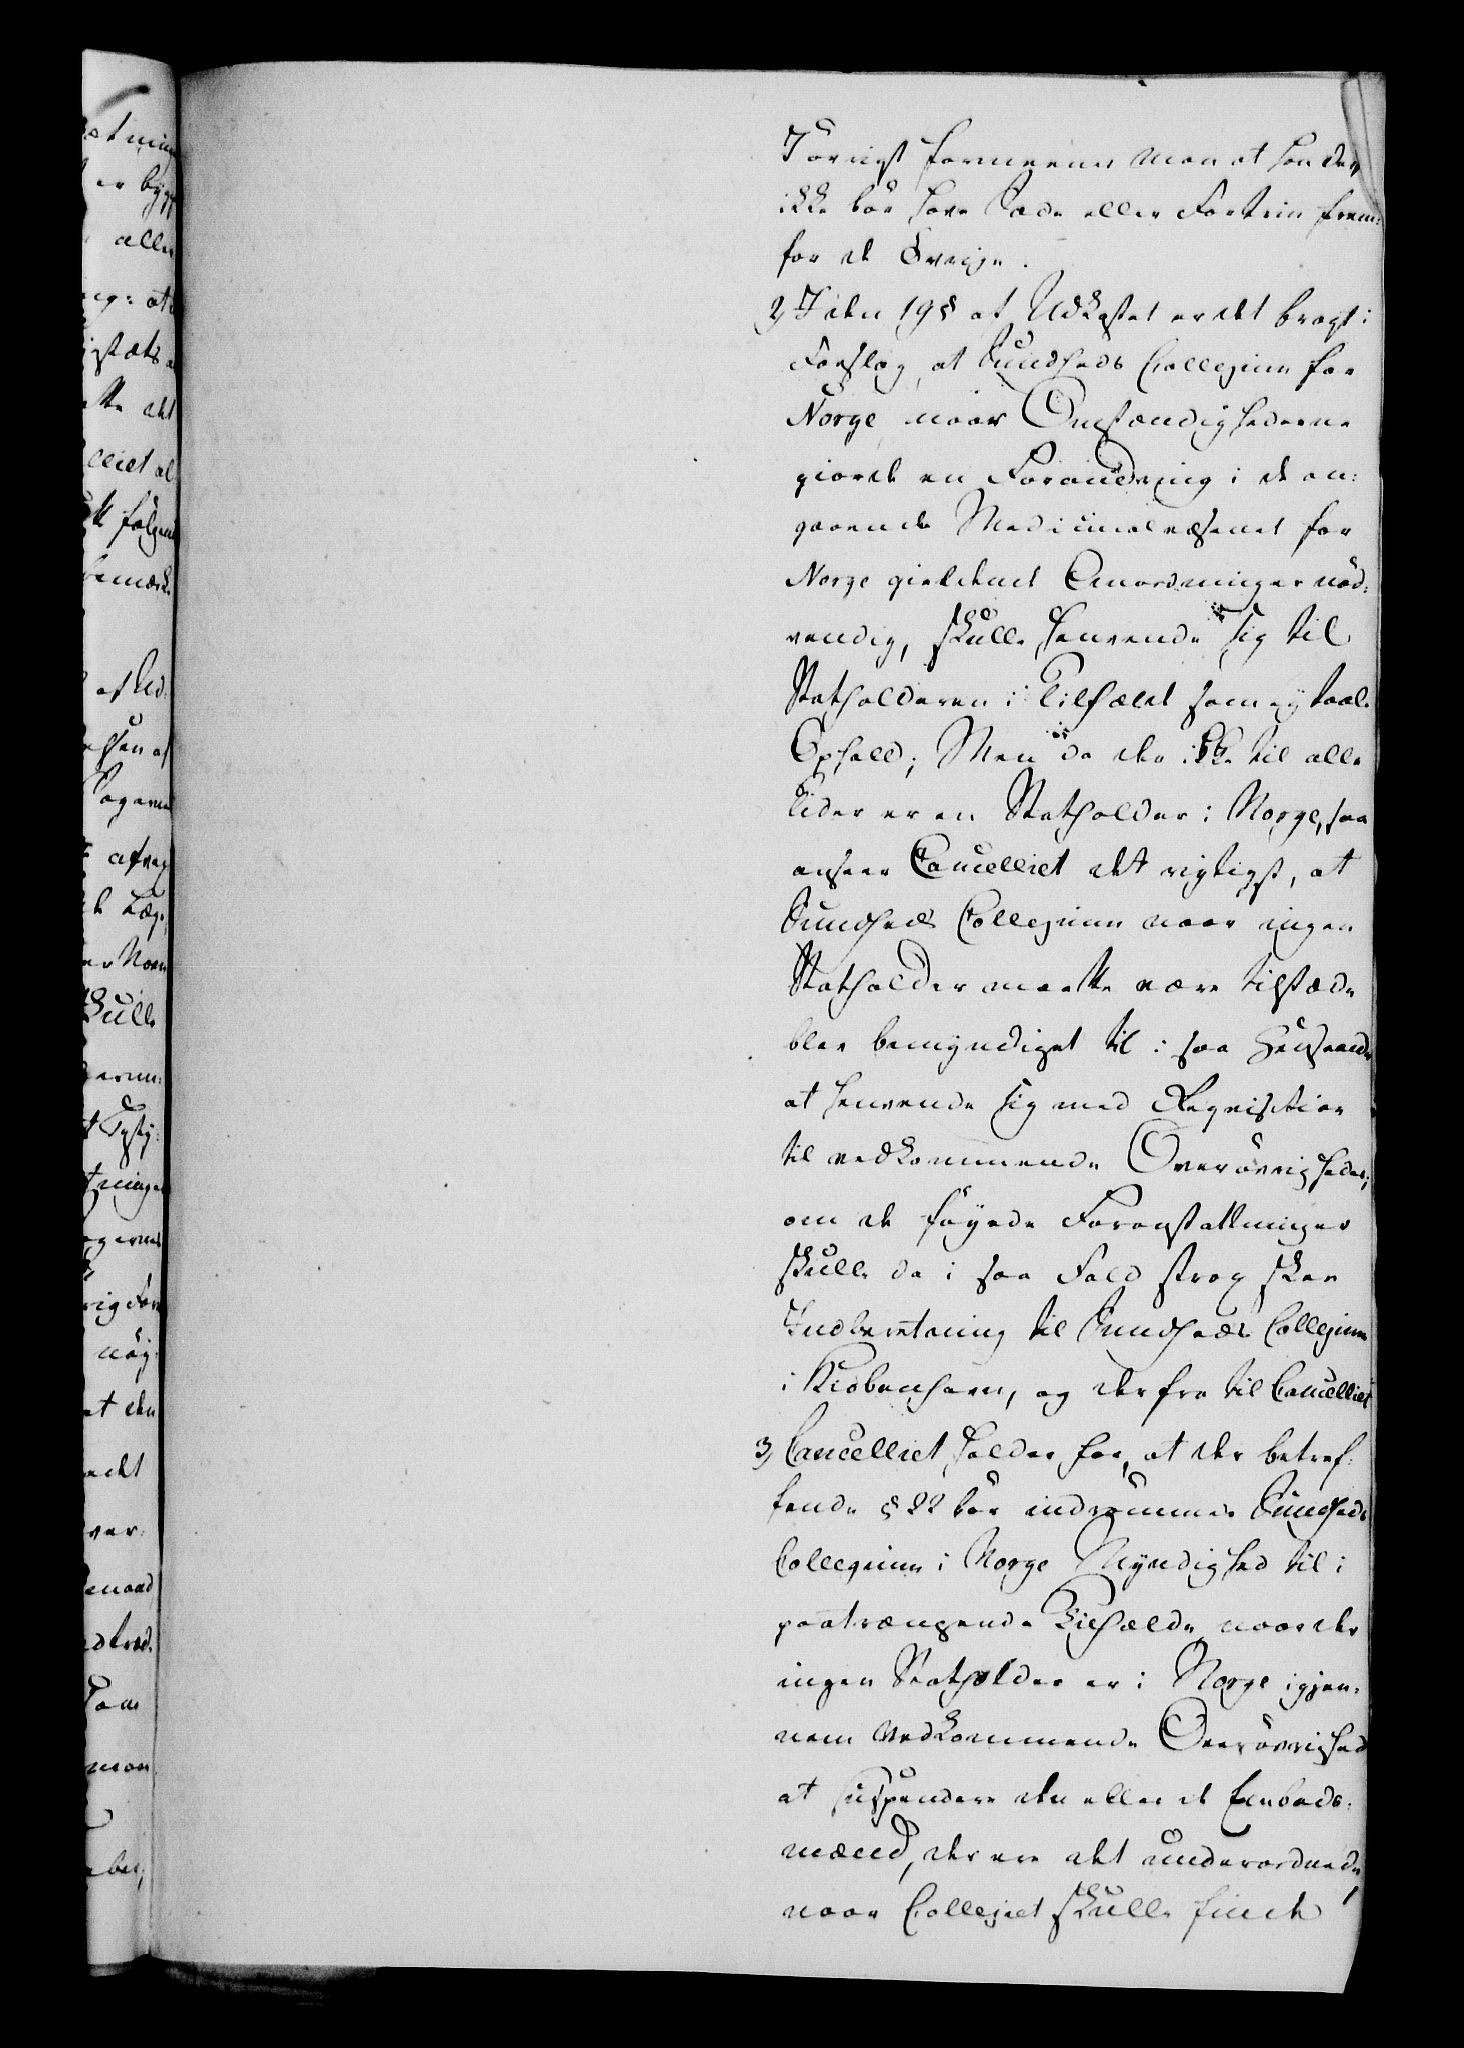 Iövrigt formeenes man at han der
ikke bör have Sæde eller Fortrin frem-
for de Övrige.
2, I den 19 § af Udkastet er det bragt i
Forslag, at Sundheds Collegium for
Norge naar Omstændighederne
giorde en Forandring i de an-
gaaende Medicinalvæsenet for
Norge gieldende Anordninger nöd-
vendig, skulle henvende sig til
Statholderen i Tilfælde som ey taale
Ophold; Men da der ikke til alle
Tider er en Statholder i Norge, saa
anseer Cancelliet det rigtigst, at
Sundheds Collegium naar ingen
Statholder maatte være tilstæde
blev bemyndiget til i saa Henseende
at henvende sig med Reqvisition
til vedkommende Overövrigheder,
om de föyede Foranstaltninger
skulle da i saa Fald strax skee
Indberetning til Sundheds Collegium
i Kiöbenhavn, og derfra til Cancelliet
3, Cancelliet holder for, at der betref-
fende § 22 bör indrömmes Sundheds
Collegium i Norge Myndighed til i
paatrængende Tilfælde, naar der
ingen Statholder er i Norge igjen-
nem vedkommende Overövrighed
at suspendere den eller de Embeds-
mænd, der ere det underordnede,
naar Collegiet skulle finde